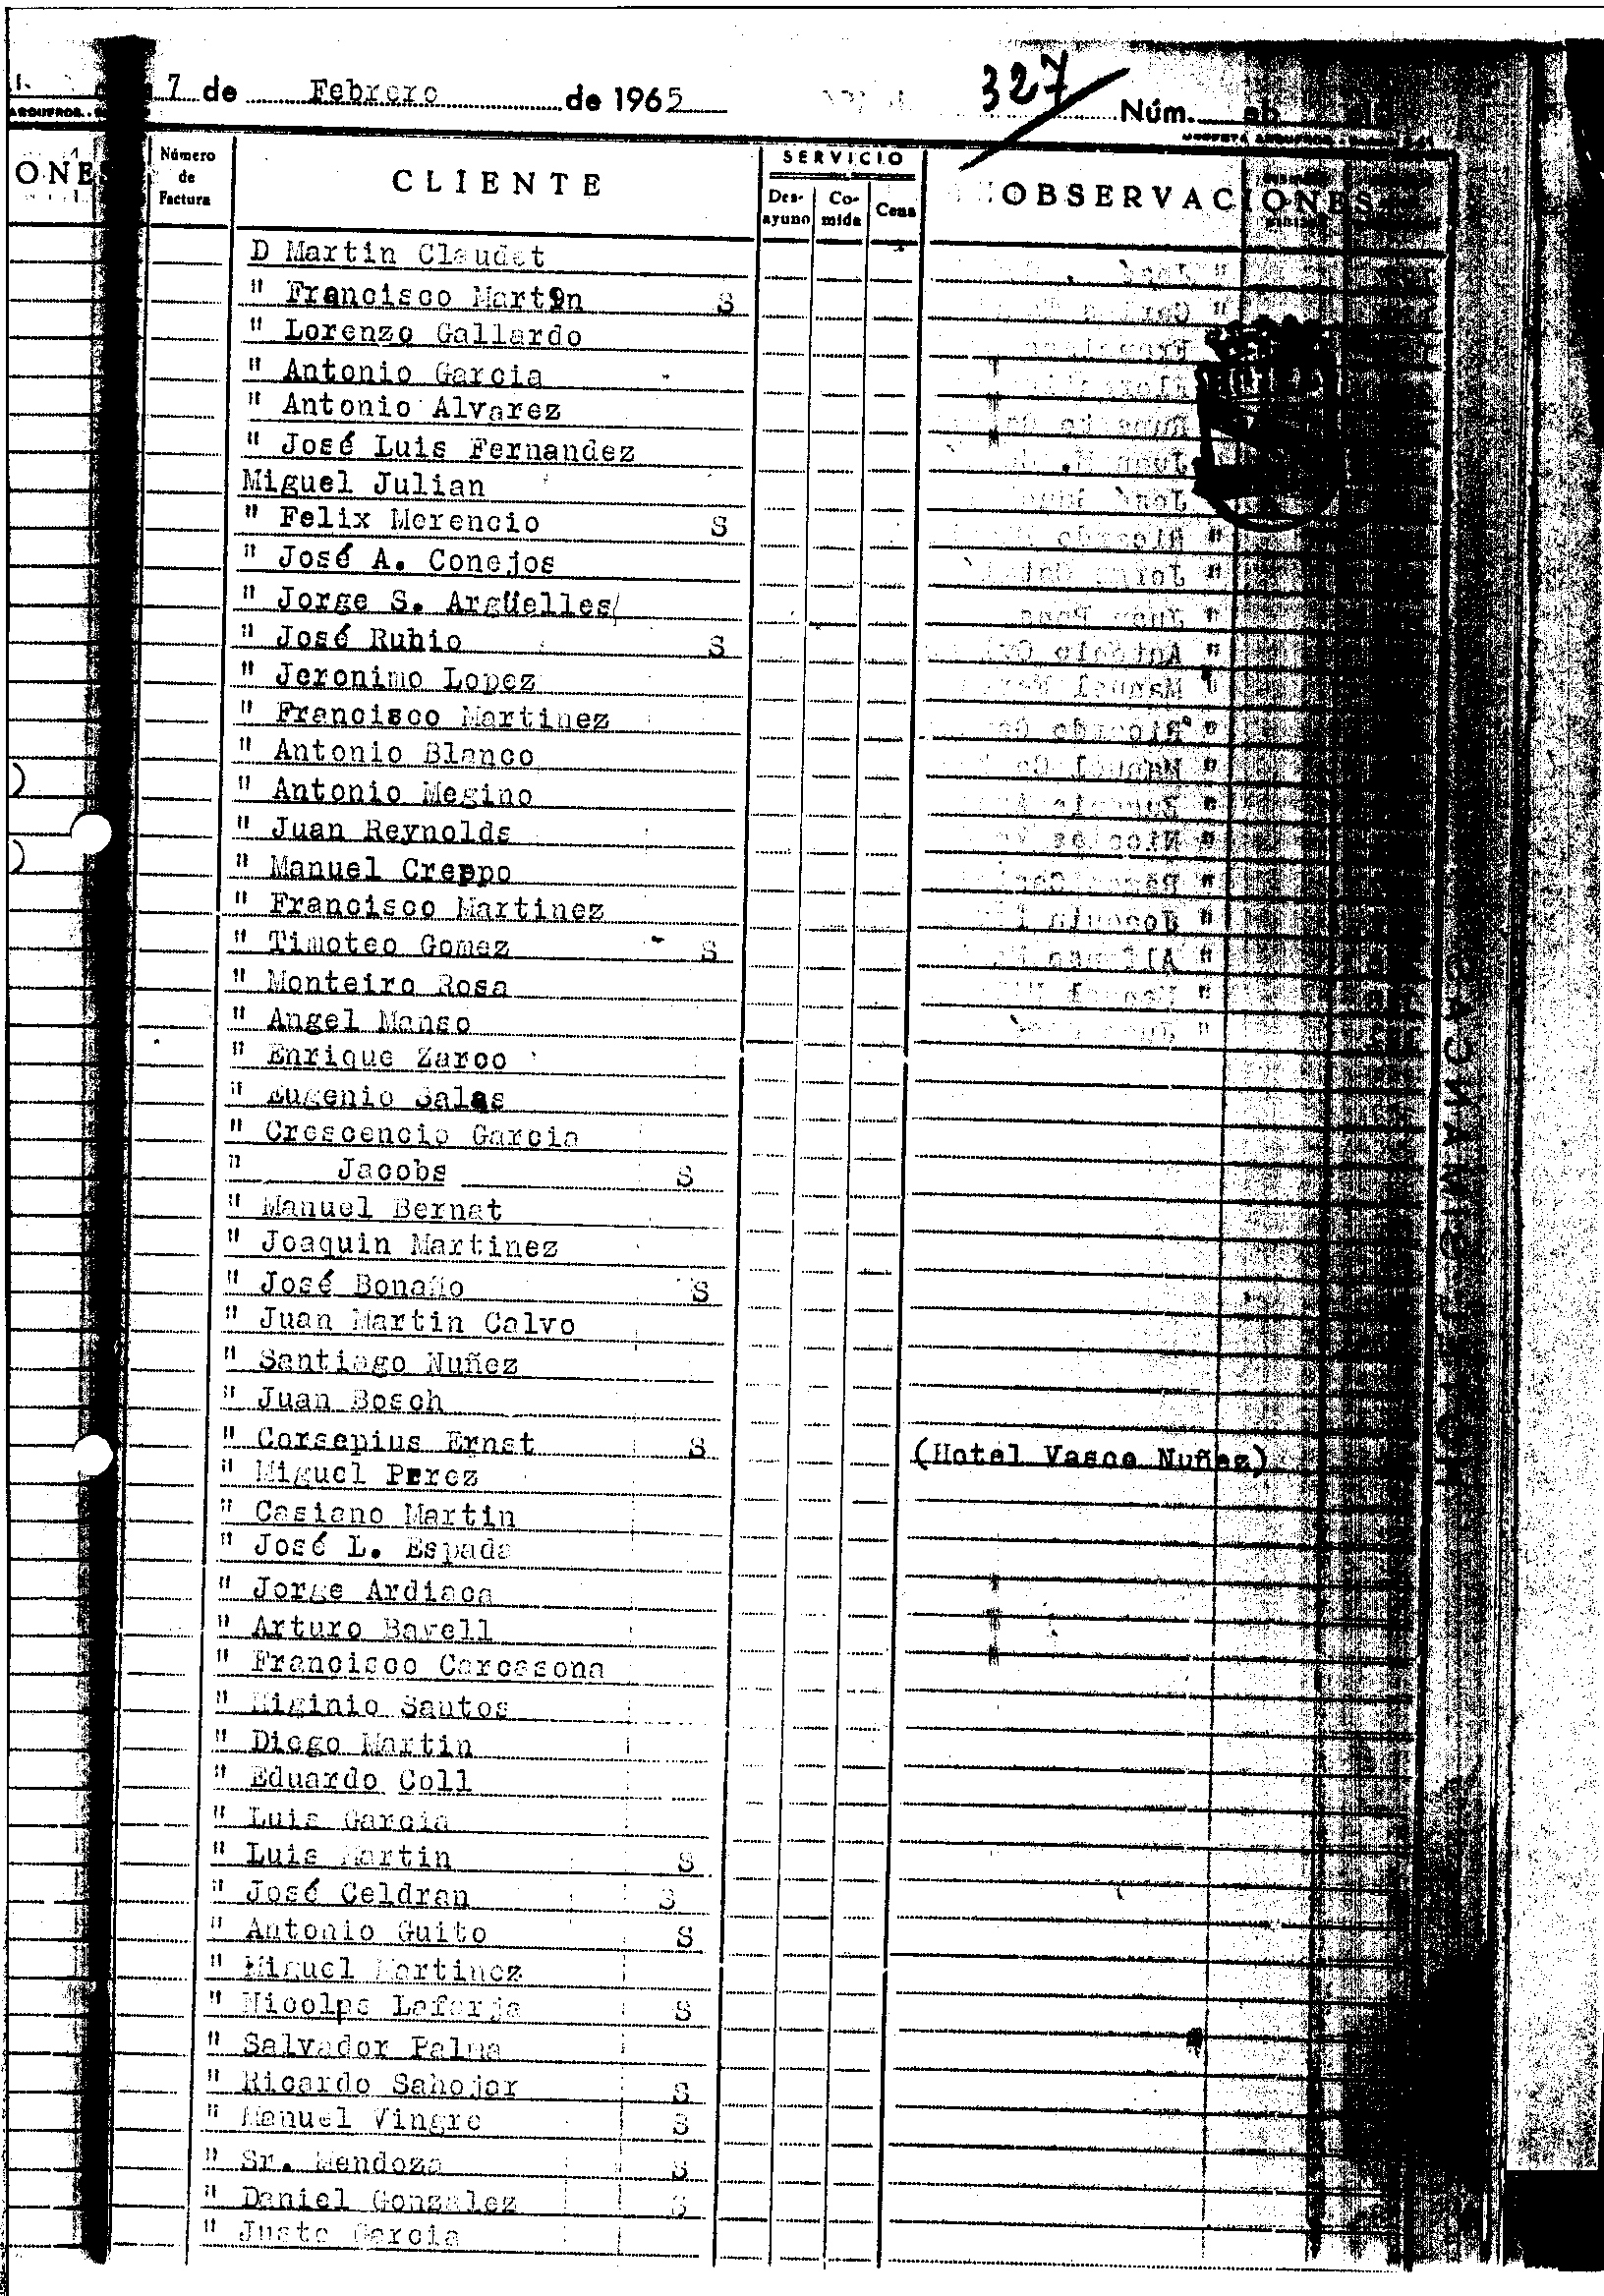 7 de Febrero de 1965 327 Núm.
ONES
Número de Factura
CLIENTE
SERVICIO
Desayuno Comida Cena
OBSERVACIONES
D Martin Claudet
" Francisco Martin S
" Lorenzo Gallardo
" Antonio Garcia
" Antonio Alvarez
" José Luis Fernandez
Miguel Julian
" Felix Merencio S
" José A. Conejos
" Jorge S. Argüelles
" José Rubio S
" Jeronimo Lopez
" Francisco Martinez
" Antonio Blanco
" Antonio Megino
" Juan Reynolds
" Manuel Creppo
" Francisco Martinez
" Timoteo Gomez S
" Monteiro Rosa
" Angel Manso
" Enrique Zarco
" Eugenio Salas
" Crescencio Garcia
" Jacobs S
" Manuel Bernat
" Joaquin Martinez
" José Bonaño S
" Juan Martin Calvo
" Santiago Nuñez
" Juan Bosch
" Corsepius Ernst S (Hotel Vasco Nuñez)
" Miguel Perez
" Casiano Martin
" José L. Espada
" Jorge Ardiaca
" Arturo Bavell
" Francisco Carcasona
" Higinio Santos
" Diego Martin
" Eduardo Coll
" Luis Garcia
" Luis Martin S
" José Celdran S
" Antonio Guito S
" Miguel Martinez
" Nicolps Laforja S
" Salvador Palma
" Ricardo Sahojar S
" Manuel Vingre S
" Sr. Mendoza S
" Daniel Gonzalez S
" Justo Garcia